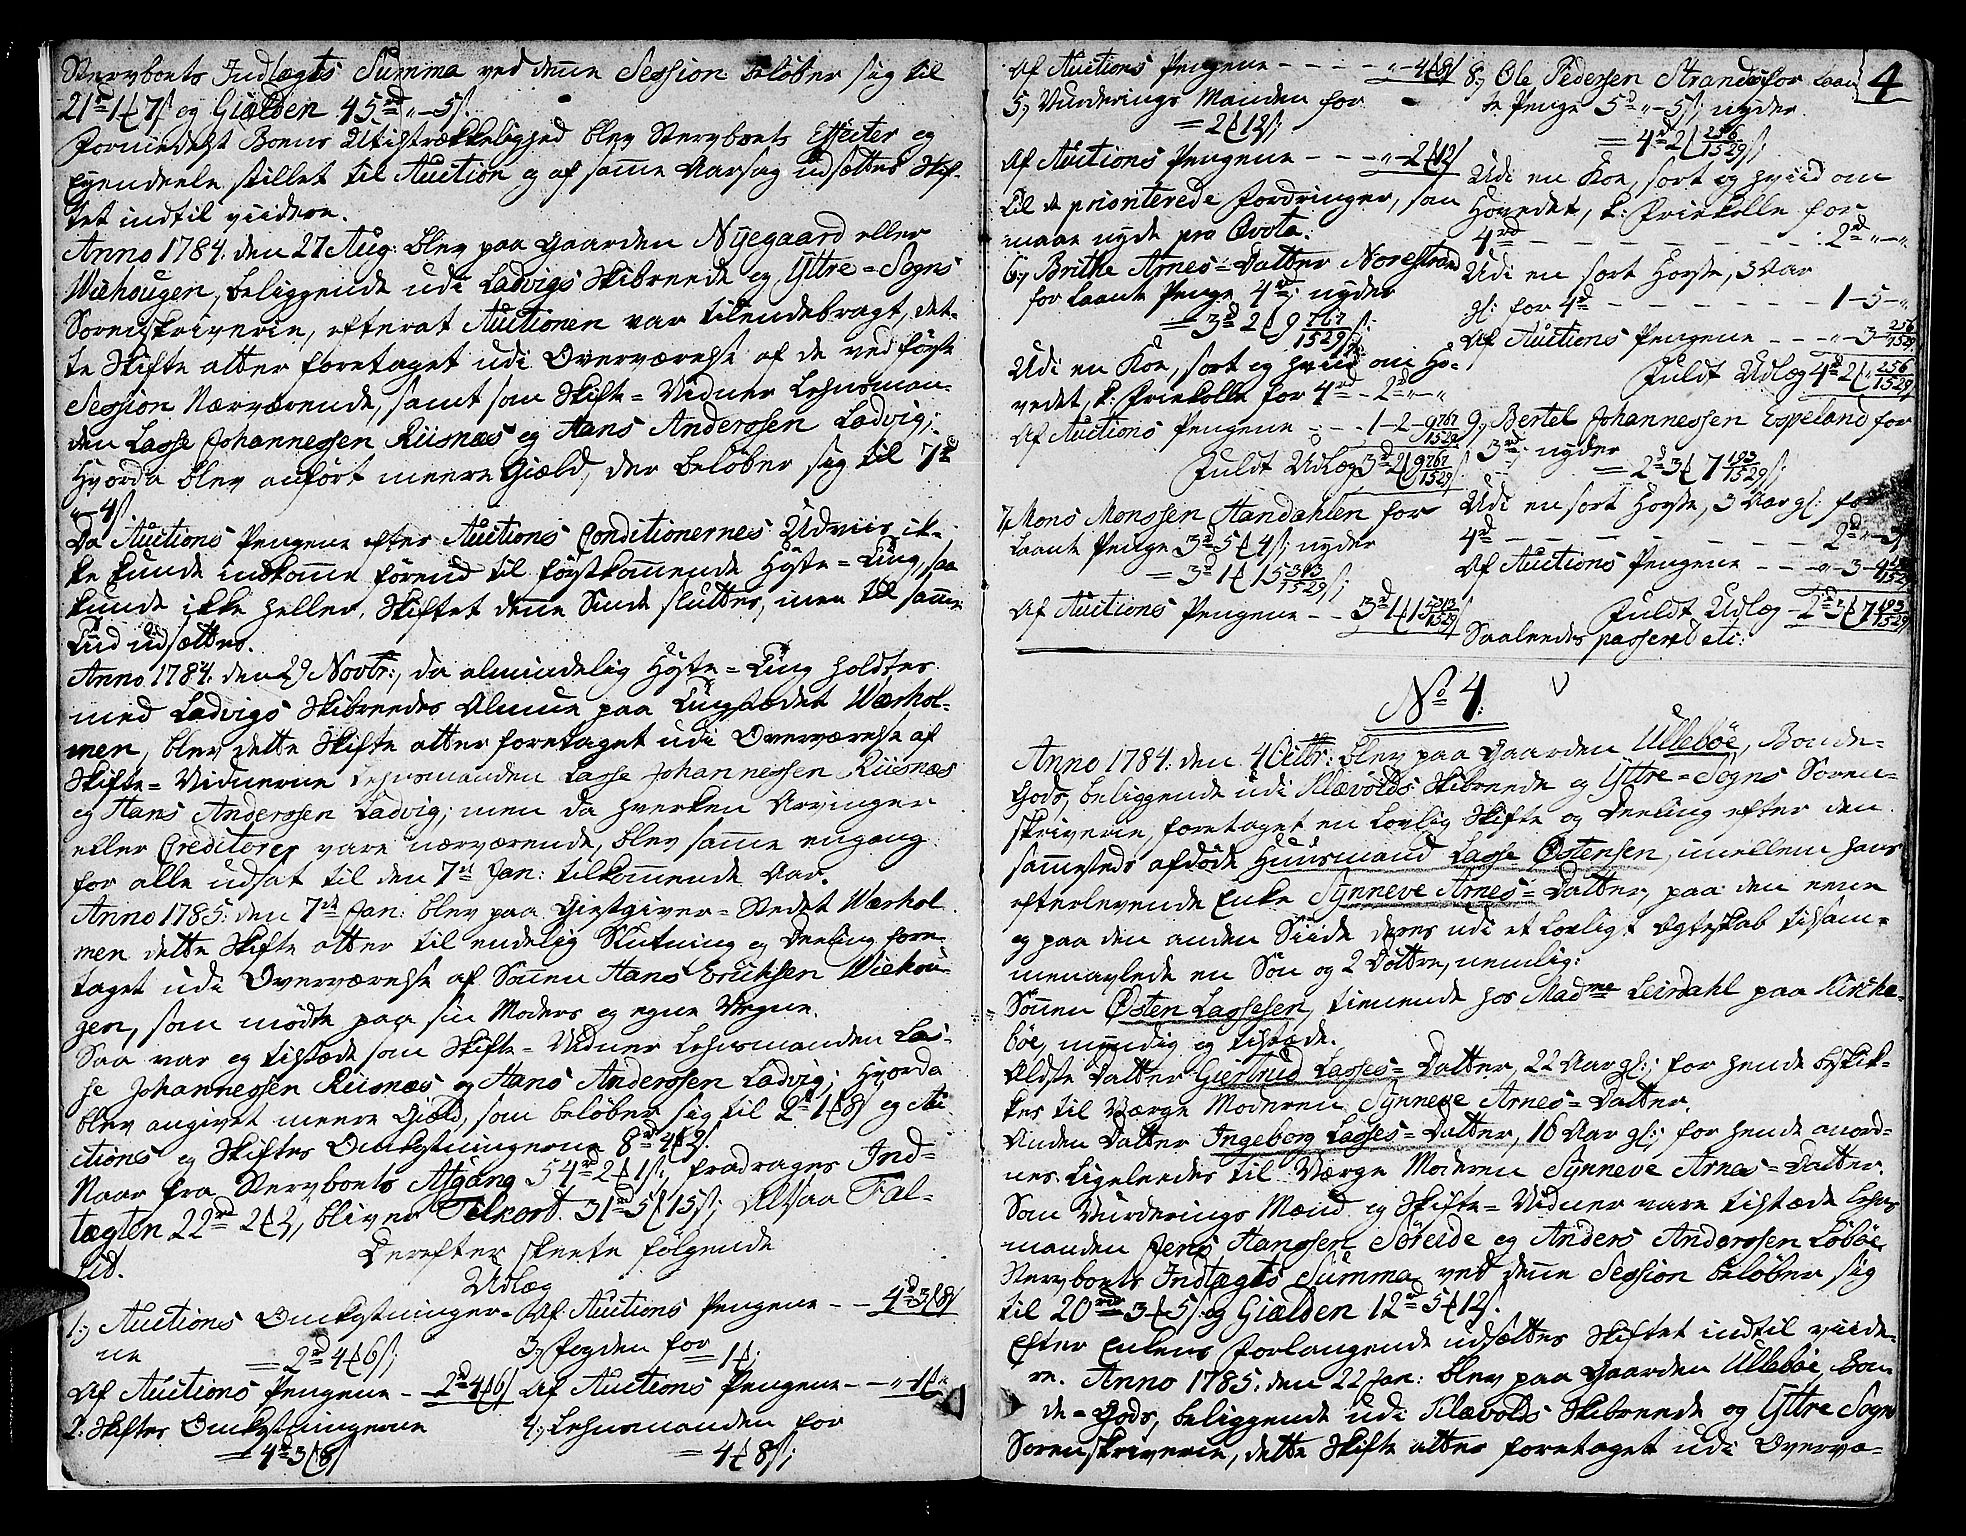 Stervboets Indtægts Summa ved denne Session beløber sig til
21rd 1 ʄ 7 ſ og Giælden 45rd „ – 5 ſ.
Formedelst Boens Utilstrækkelighed blev Stervboets Effecter og
Eyendeele stillet til Auction og af samme Aarsag udsættes Skif-
tet indtil viidere.
Anno 1784. den 27 Aug: blev paa Gaarden Nyegaard eller
Wiehougen, beliggende udi Ladvigs Skibreede og Yttre-Sogns
Sorenskriverie, efterat Auctionen var tilendebragt, det-
te Skifte atter foretaget udi Overværelse af de ved første
Session Nærværende, samt som Skifte-Vidner Lehnsman-
den Lasse Johannessen Riisnæs og Hans Anderssen Ladvig;
Hvorda blev anført meere Giæld, der beløber sig til 7rd
„ – 4 ſ.
Da Auctions Pengene efter Auctions Conditionernes Udviis ik-
ke kunde indkomme førend til førstkommende Høste-Ting, saa
kunde ikke heller Skiftet denne Sinde sluttes, men til samme
Tiid udsættes.
Anno 1784. den 29 Novbr:, da almindelig Høste-Ting holdtes
med Ladvigs Skibreedes Almue paa Tingstædet Wærhol-
men, blev dette Skifte atter foretaget udi Overværelse af
Skifte-Vidnerne Lehnsmanden Lasse Johannessen Riisnæs
og Hans Anderssen Ladvig; men da hverken Arvinger
eller Creditorer vare nærværende, blev samme engang
for alle udsat til den 7de Jan: tilkommende Aar.
Anno 1785: den 7de Jan: blev paa Giestgiver-Stedet Wærhol
men dette Skifte atter til endelig Slutning og Deeling fore-
taget udi Overværelse af Sønnen Hans Erichsen Wiehou-
gen, som mødte paa sin Moders og egne Vegne.
Saa var og tilstæde som Skifte-Vidner Lehnsmanden Las-
se Johannessen Riisnæs og Hans Anderssen Ladvig; Hvorda
blev angivet meere Giæld, som beløber sig til 2rd 1 ʄ 8 ſ og Au
ctions og Skiftes Omkostningerne 8rd 4 ʄ 2 ſ.
Naar fra Stervboets Afgang 54rd 2 ʄ 1 ſ; fradrages Ind-
tægten 22rd 2 ʄ 2, bliver Tilkort 31rd 5 ʄ 15 ſ; Altsaa Fal-
lit.
Derefter skeete følgende
Udlæg
1., Auctions Omkostninger-
ne
= 2rd 4 ʄ 6 ſ;
Af Auctions Pengene – 2rd 4 ʄ 6 ſ
2. Skiftes Omkostningerne
= 4rd 3 ʄ 8 ſ
Af Auctions Pengene – – 4rd 3 ʄ 8 ſ
3., Fogden for
= 1 ʄ.
Af Auctions Pengene – – „ – 1 ʄ „
4., Lehnsmanden for
= 4 ʄ 8 ſ;
Af Auctions Pengene – – – – „ – 4 ʄ 8 ſ
5., Vurderings Manden for
= 2 ʄ 12 ſ;
Af Auctions Pengene – – – „ – 2 ʄ 12 ſ
Til de prioriterede Fordringer, som
maae nyde pro Qvota.
6., Brithe Arnes-Datter Norestrand
for laante Penge 4rd; nyder
= 3rd 2 ʄ 9 767/1529 ſ;
Udi en Koe, sort og hviid om Ho-
vedet, k: Friekolle for 4rd – 2rd „ – „
Af Auctions Pengene – – – 1 – 2 – 9 767/1529
Fuldt Udlæg 3rd 2 ʄ 9 767/1529 ſ
7., Mons Monssen Handahlen for
laante Penge 3rd 5 ʄ 4 ſ; nyder
= 3rd 1 ʄ 15 313/1529 ſ;
Af Auctions Pengene – – 3rd 1 ʄ 15 313/1529 ſ
4
8., Ole Pedersen Strandøs for laan
te Penge 5rd „ – 5 ſ; nyder
= 4rd 2 ʄ 256/1529 ſ;
Udi en Koe, sort og hviid om
Hovedet, k: Friekolle for
4rd – – – – – – – – – 2rd „ – „
Udi en sort Horste, 3 Aar
gl: for 4rd – – – – – – – 1 – 5 – „
Af Auctions Pengene – – – „ – 3 – 256/1529
Fuldt Udlæg 4rd 2 ʄ „ 256/1529
9., Bertel Johannessen Espeland for
3rd; nyder
= 2rd 3 ʄ 7 193/1529 ſ;
Udi en sort Horste, 3 Aar gl: for
4rd – – – – – – – – – 2rd „ – 3 ſ
Af Auctions Pengene – – – „ – 3 – 4 193/1529
Fuldt Udlæg – 2rd 3 ʄ 7 193/1529
Saaleedes passeret etc:
No 4.
Anno 1784. den 4 Octbr: blev paa Gaarden Ullebøe, Bonde-
Gods, beliggende udi Klævolds Skibreede og Yttre-Sogns Soren-
skriverie, foretaget en Lovlig Skifte og Deeling efter den
sammesteds afdøde Huusmand Lasse Østensen, imellem hans
efterlevende Enke Synneve Arnes-Datter, paa den eene
og paa den anden Siide deres udi et lovligt Ægteskab tilsam-
menavlede en Søn og 2 Døttre, nemlig:
Sønnen Østen Lassesen, tienende hos Madme Leirdahl paa Kirche-
bøe, myndig og tilstæde.
Ældste Datter Giertrud Lasses-Datter, 22 Aar gl:; for hende beskik-
kes til Værge Moderen Synneve Arnes-Datter.
Anden Datter Ingeborg Lasses-Datter, 16 Aar gl:; for hende anord-
nes ligeleedes til Værge Moderen Synneve Arnes-Datter.
Som Vurderings Mænd og Skifte-Vidner vare tilstæde Lehns
manden Jens Hanssen Søreide og Anders Anderssen Løbøe.
Stervboets Indtægts Summa ved denne Session beløber sig
til 20rd 3 ʄ 5 ſ og Giælden 12rd 5 ʄ 12 ſ.
Efter Enkens Forlangende udsættes Skiftet indtil viide-
re. Anno 1785: den 22 Jan: blev paa Gaarden Ullebøe, Bon-
de-Gods, beliggende udi Klævolds Skibreede og Yttre Sogns
Sorenskriverie, dette Skifte atter foretaget udi Overvæ-